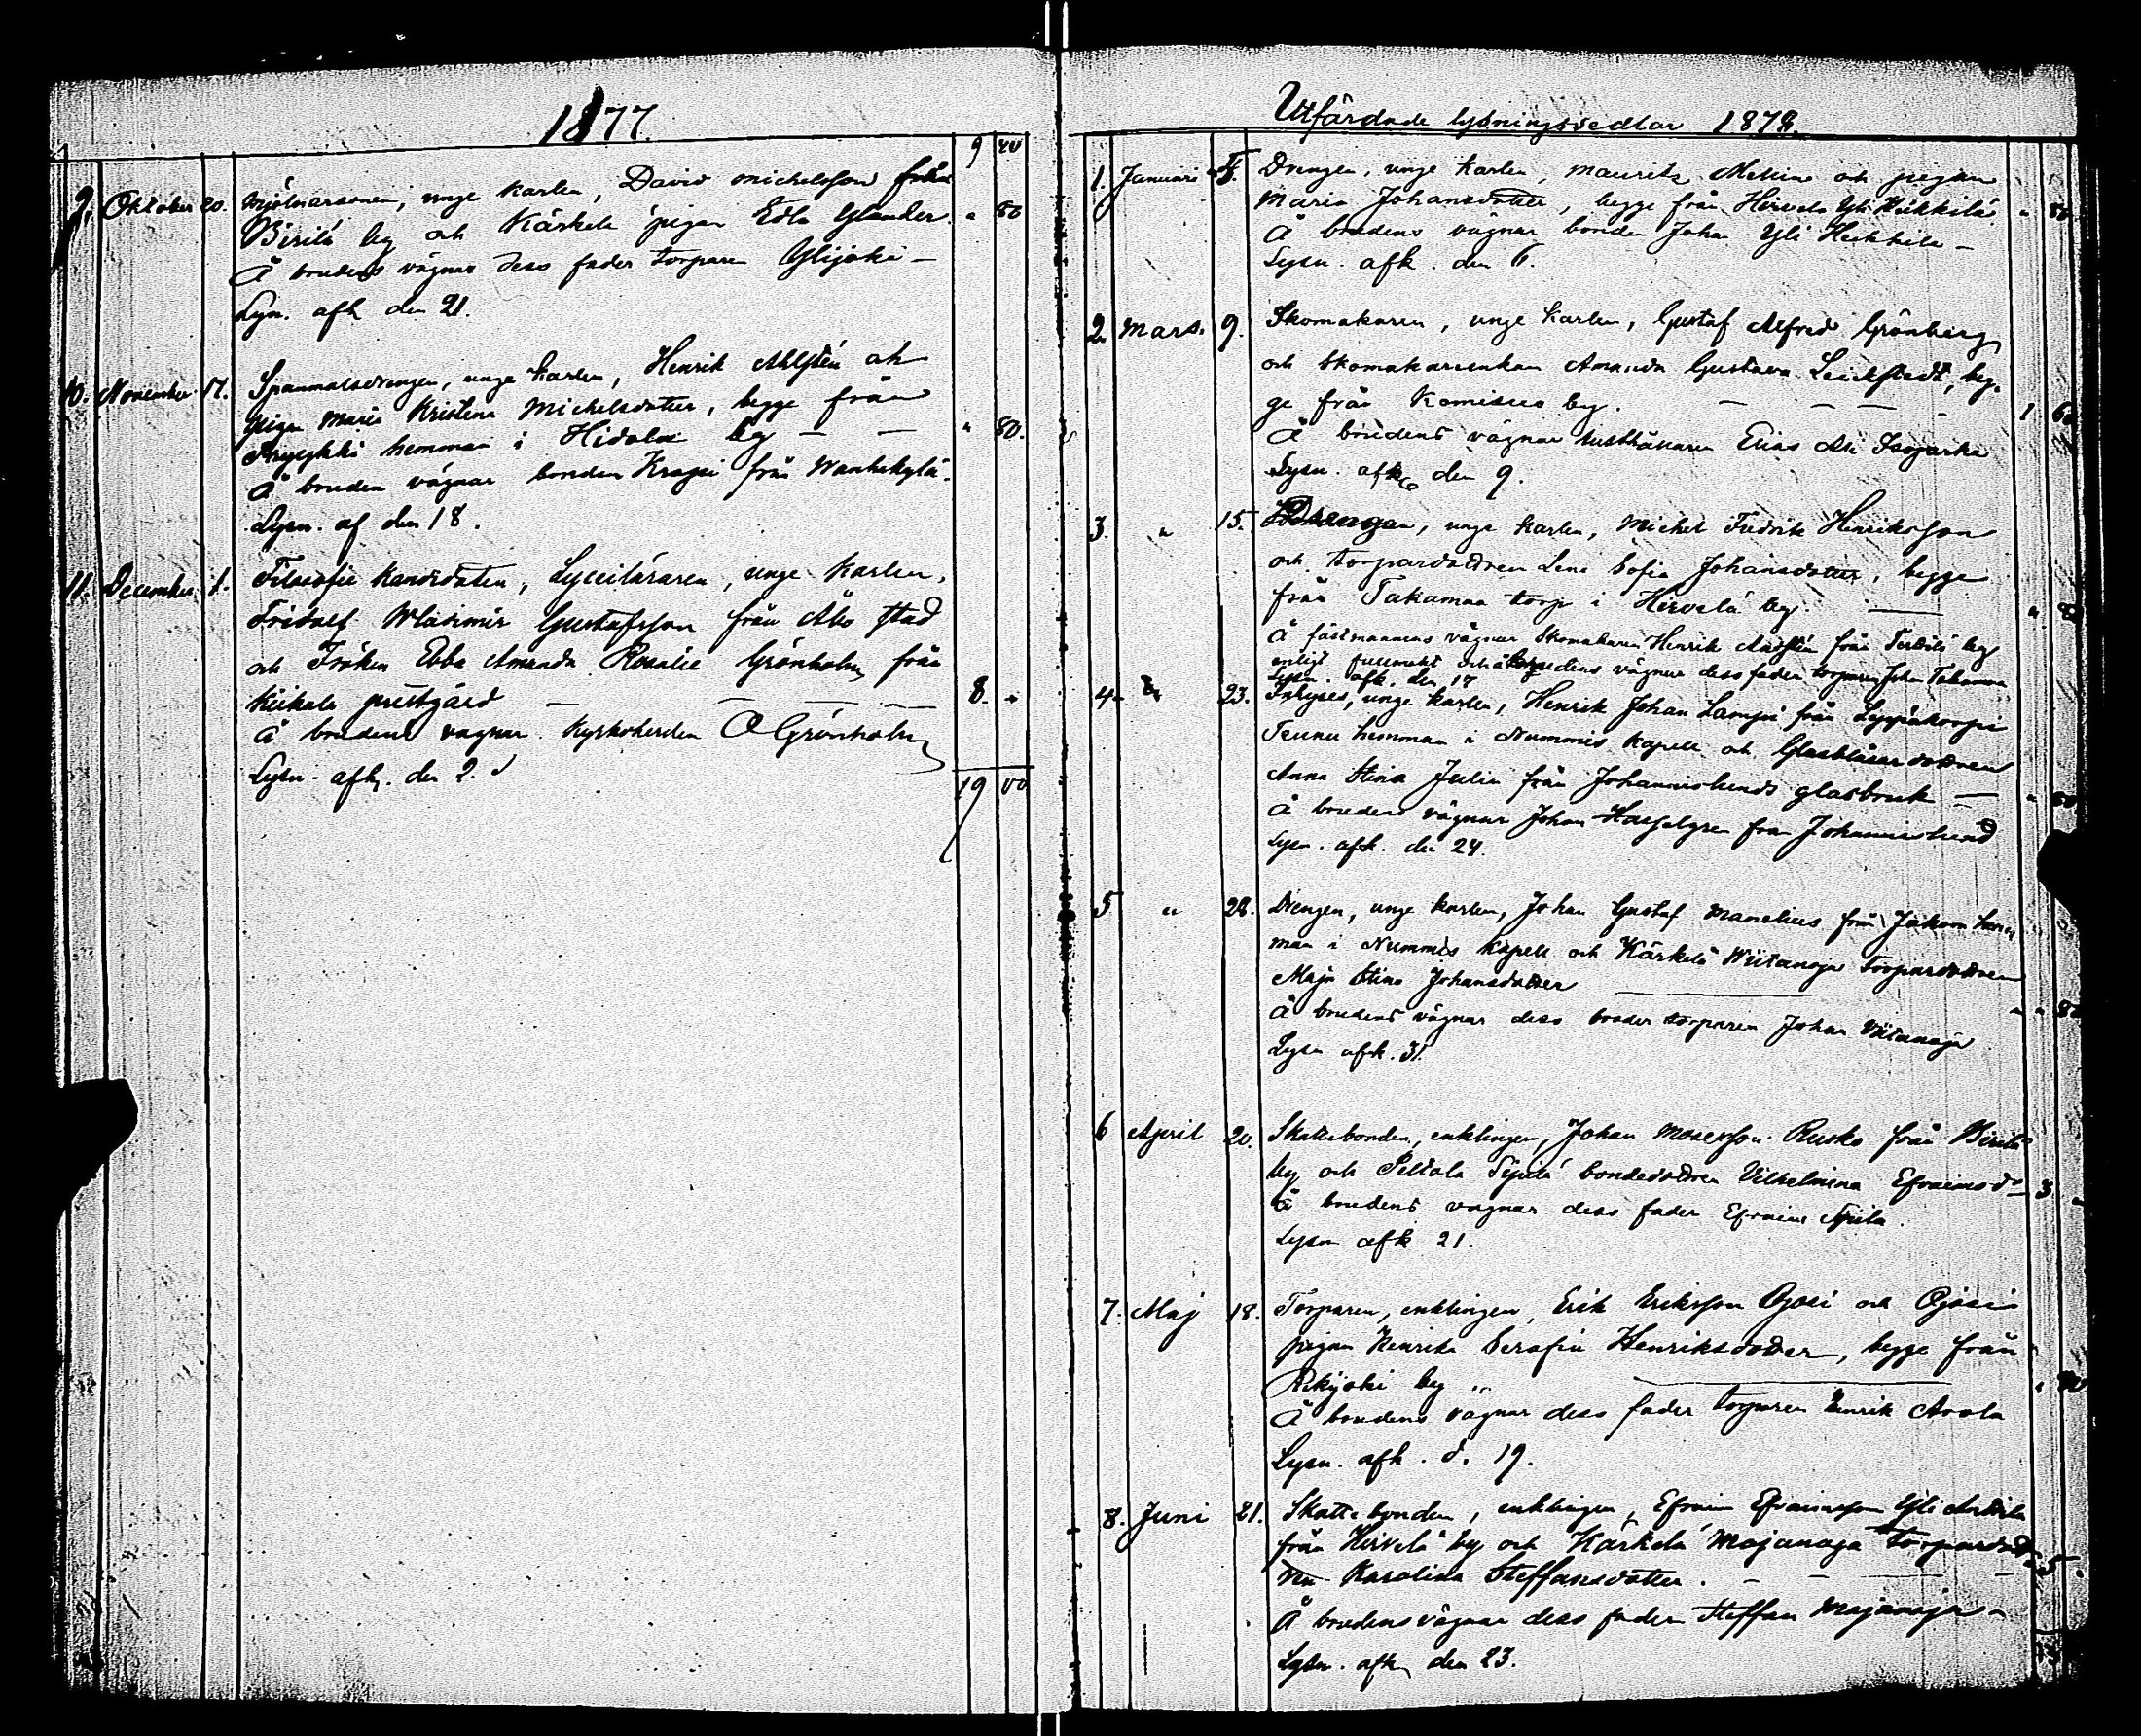 1877.
9 20
9. Oktober 20. Mjölnarsonen, unge karlen, David Michelsson från
Viirilä by och Kärkelä pigan Edla Glander. " 80
Å brudens vägnar dess fader torparen Ylijoki –
Lysn. afk den 21.
10. November 17. Spanmålsdrengen, unge karlen, Henrik Ahlstén och
pigan Maria Kristina Michelsdotter, begge från
hemman i Hidola by – – " 80.
Å bruden vägnar bonden Krapi från Wanhakylä.
Lysn. af den 18.
11. December 1. Filosofie Kandidaten, Lyceiläraren, unge karlen,
Fridolf Wladimir Gustafsson från Åbo stad
och Fröken Ebba Amanda Rosalie Grönholm från
Kiikala prestgård – – – – 8. "
Å brudens vägnar Kyrkoherden O Grönholm
Lysn. afk. den 2.
19 00
Utfärdade lysningssedlar 1878.
1. Januari 5. Drengen, unge karlen, Maurits Mellin och pigan
Maria Johansdotter, begge från Hirvelä Yli Heikkilä " 80.
Å brudens vägnar bonden Johan Yli Heikkilä –
Lysn. afk. den 6.
2. Mars. 9. Skomakaren, unge karlen, Gustaf Alfred Grönberg
och skomakareenkan Amanda Gustava, beg-
ge från Komisuo by. – – – – 1 60
Å brudens vägnar Elias Ali Isojärke
Lysn. afk den 9.
3. " 15. Drengen, unge karlen, Michel Fredrik Henriksson
och torpardottren Lena Sofia Johansdotter, begge
från Takamaa torp i Hirvelä by. — " 80
Å fästmannens vägnar Skomakaren Henrik från by
enligt fullmakt och å brudens vägnar dess fader torparen Johan Takamaa
Lysn. afk. den 17
4. " 23. Inhyses, unge karlen, Henrik Johan från
hemman i Nummis kapell och Glasblåsardottren
Anna Stina Julin från Johannislunds glasbruk — " 80
Å brudens vägnar Johan Hasselgren från Johannislund
Lysn. afk. den 24.
5 " 28. Drengen, unge karlen, Johan Gustaf Manelius från Jakom hem-
man i Nummis kapell och Kärkelä Wiitanoja torpardottren
Maja Stina Johansdotter — " 80
Å brudens vägnar dess broder torparen Johan Viitanoja
Lysn afk. 31.
6 April 20. Skattebonden, enklingen, Johan Mosesson Rusko från Viirilä
by och Peltola Sipilä bondedottren Vilhelmina Efraimsd:r 3 "
Å brudens vägnar dess fader Efraim Sipilä.
Lysn afk 21.
7. Maj 18. Torparen, enklingen, Erik Eriksson Ojasi och Ojasi
pigan Henrika Serafia Henriksdotter, begge från
Rekijoki by " — " 80
Å brudens vägnar dess fader torparen Henrik Avola
Lysn. afk. d. 19.
8. Juni 21. Skattebonden, enklingen, Efraim Efraimsson Yli Anttila
från Hirvelä by och Kärkelä Majanoja torpardott-
ren Karolina Steffansdotter. – – – – 5.
Å brudens vägnar dess fader Steffan Majanoja –
Lysn. afk den 23.